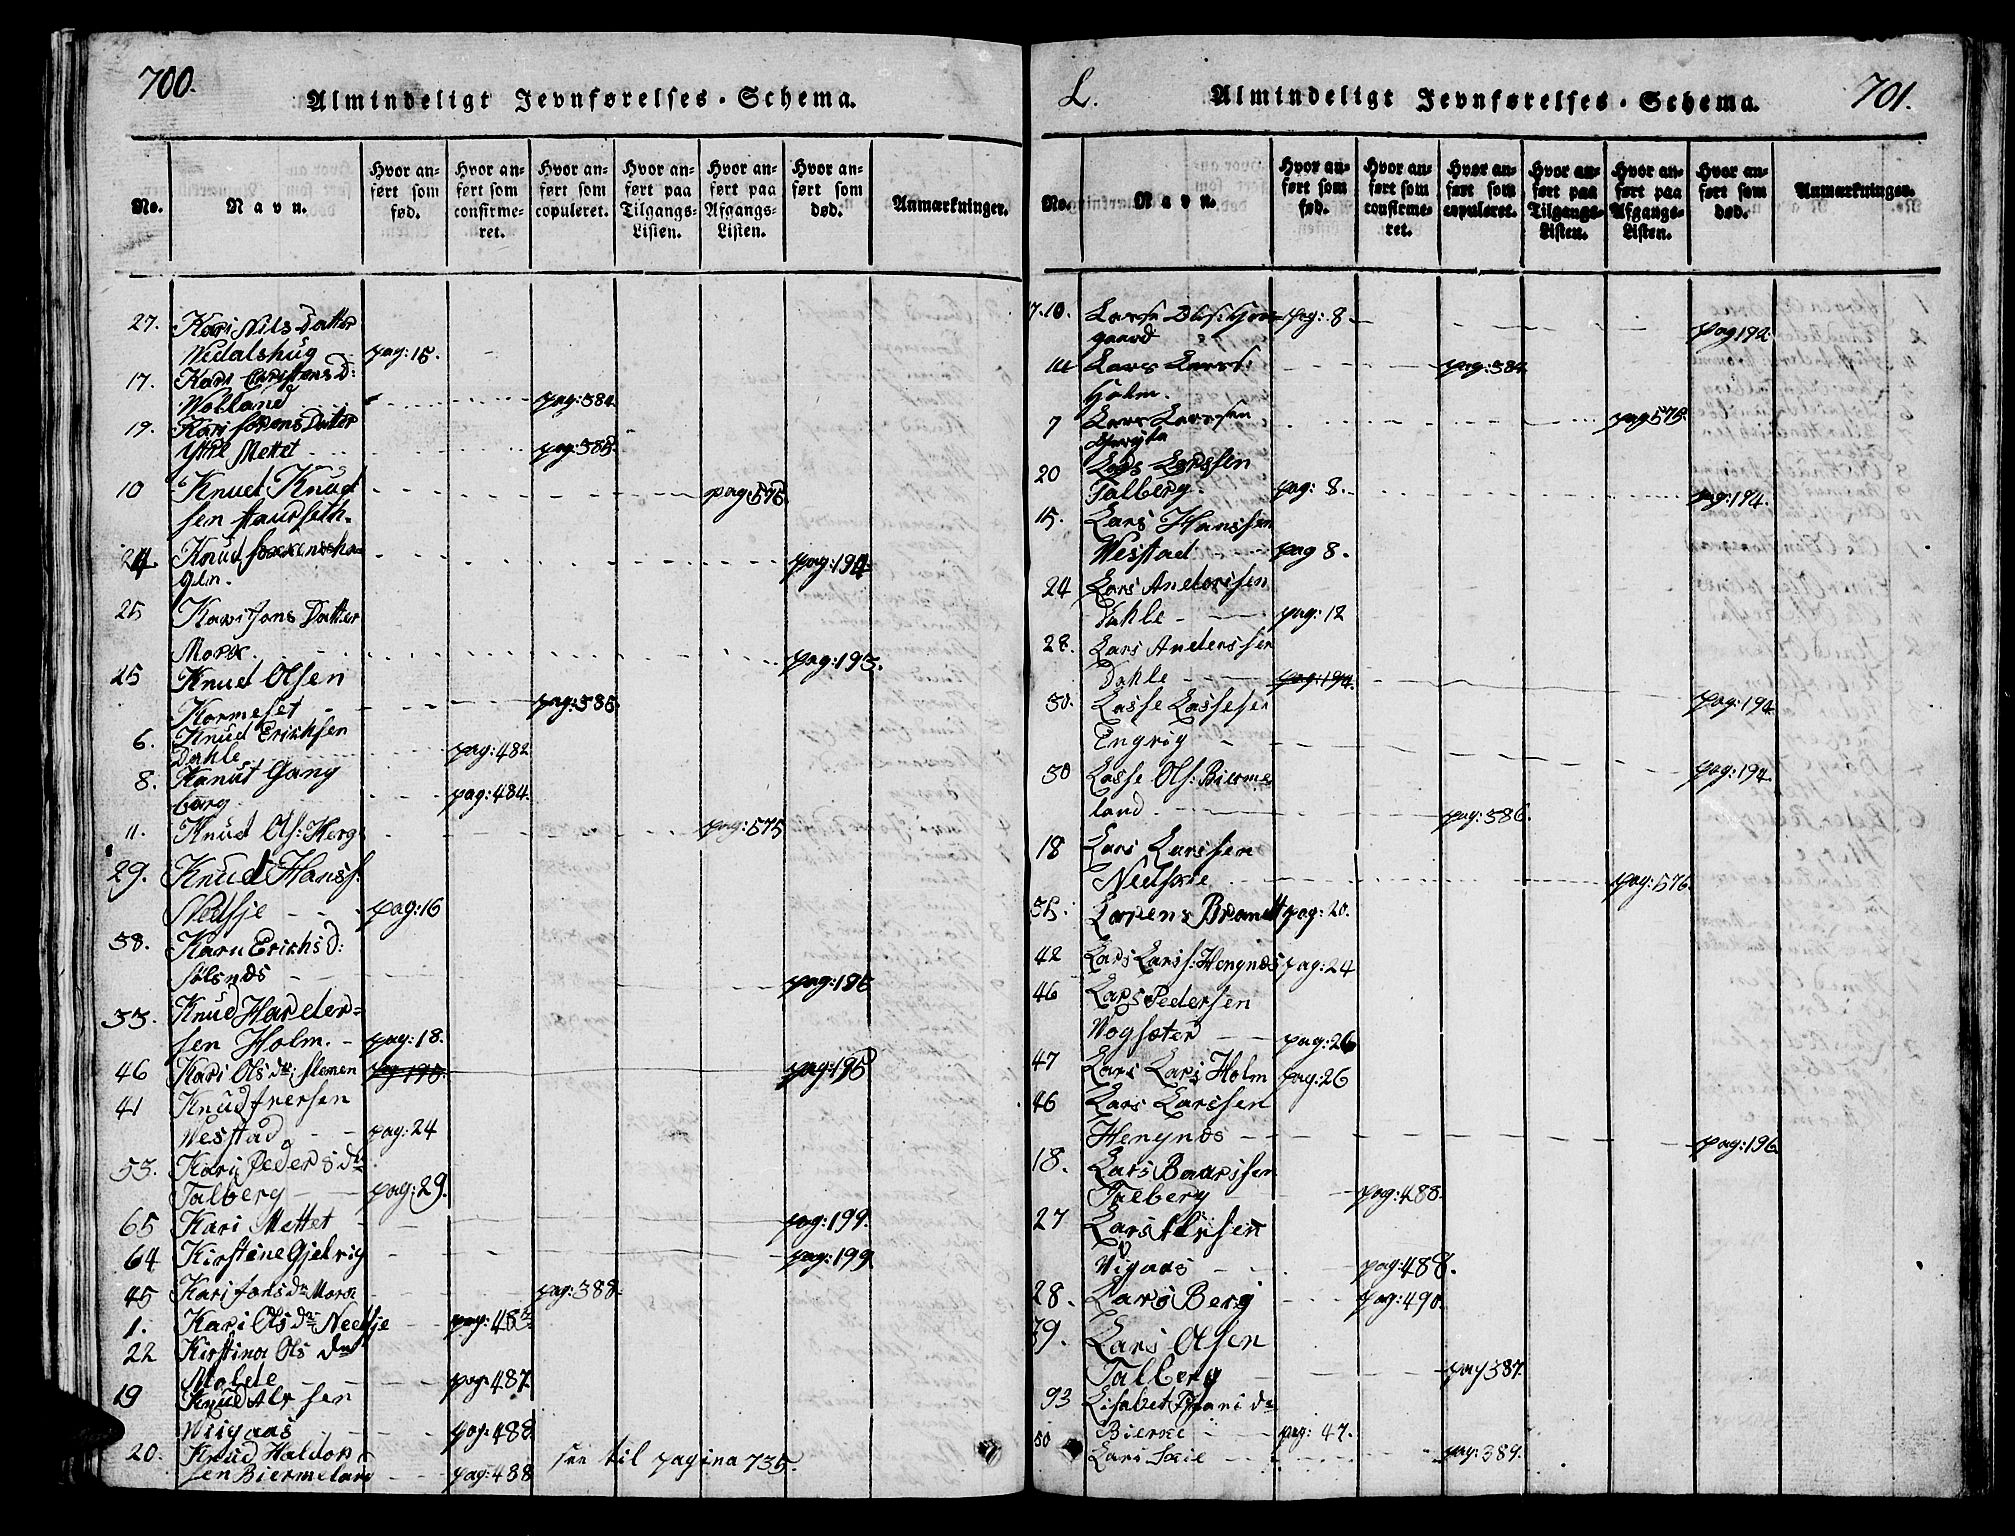 700.
Almindeligt Jevnførelses-Schema.
No.
Navn.
Hvor anført som fød.
Hvor anført som confirmeret.
Hvor anført som copuleret.
Hvor anført paa Tilgangs-Listen.
Hvor anført paa Afgangs-Listen.
Hvor anført som død.
Anmærkninger.
27. Kari Nils Datter
Nedalshug pag: 15.
17. Kari Christens D:
Wolland pag: 584.
19. Kari Datter
Mettet pag: 585.
10 Knud Knud
sen pag: 575
24 Knud
olm. pag: 194
25 Kari Jons Datter
Morse. pag: 193.
25 Knud Olsen
Kormeset pag: 585.
6. Knud Erichsen
Dahle pag: 482
8. Kanut Gang
pag: 484.
11. Knud Ols: Herg pag: 575
29. Knud Hanss.
Nedsje pag: 16
38. Karn Erichs d:
Sølsnes pag: 196
33. Knud Hardter=
sen Holm. pag: 18.
46 Kari Ols dtr: Slemen pag: 195. pag: 195
41 Knud Iversen
Westad pag: 24
53. Kari Peders dtr
Talberg pag: 29.
65 Kari Mettet pag: 199.
64 Kirstine Gjelvig pag: 199
45 Kari Jons dr Morse pag: 388.
1. Kari Ols dr Nedsje pag: 482
22 Kirstina Ols dtr
pag: 487.
19 Knud Alfsen
Wiigaas pag: 488
20. Knud Haldor
sen Biermeland pag: 488
see til pagina 735.
L.
Almindeligt Jevnførelses-Schema.
701.
No.
Navn.
Hvor anført som fød.
Hvor anført som confirmeret.
Hvor anført som copuleret.
Hvor anført paa Tilgangs-Listen.
Hvor anført paa Afgangs-Listen.
Hvor anført som død.
Anmærkninger.
7.10. Lars Ols:
gaard pag: 8. pag 194.
14 Lars Larss:
Holm. pag: 584
7 Lars Larssen
pag 575.
20 Lars Larssen
Talberg. pag: 8. pag: 194.
15. Lars Hanssen
Westad pag 8.
24 Lars Anderssen
Dahle pag: 12
28. Lars Anderssen
Dahle pag: 194.
30. Lasse Lassesen pag: 194
Engvig
30 Lasse Ols: Bierme pag: 194.
land pag: 586.
18 Lars Larssen
Nedsæie pag: 576.
35. Lorens Brandt pag: 20.
42 Lars Larss: Hengnæs pag: 24
46 Lars Pedersen
Wogsæter pag: 26
47 Lars Lars: Holm pag: 26
46 Lars Larssen
Hengnæs pag: 196
18. Lars Baarssen
Talberg pag: 488.
27 Lars Alfsen
Wigaas pag: 488.
28. Lars Berg pag: 490.
39. Lars Olsen
Talberg pag 387.
93 Lisabet dtr
Bierke pag: 47.
50 Lars Sæie pag: 389.